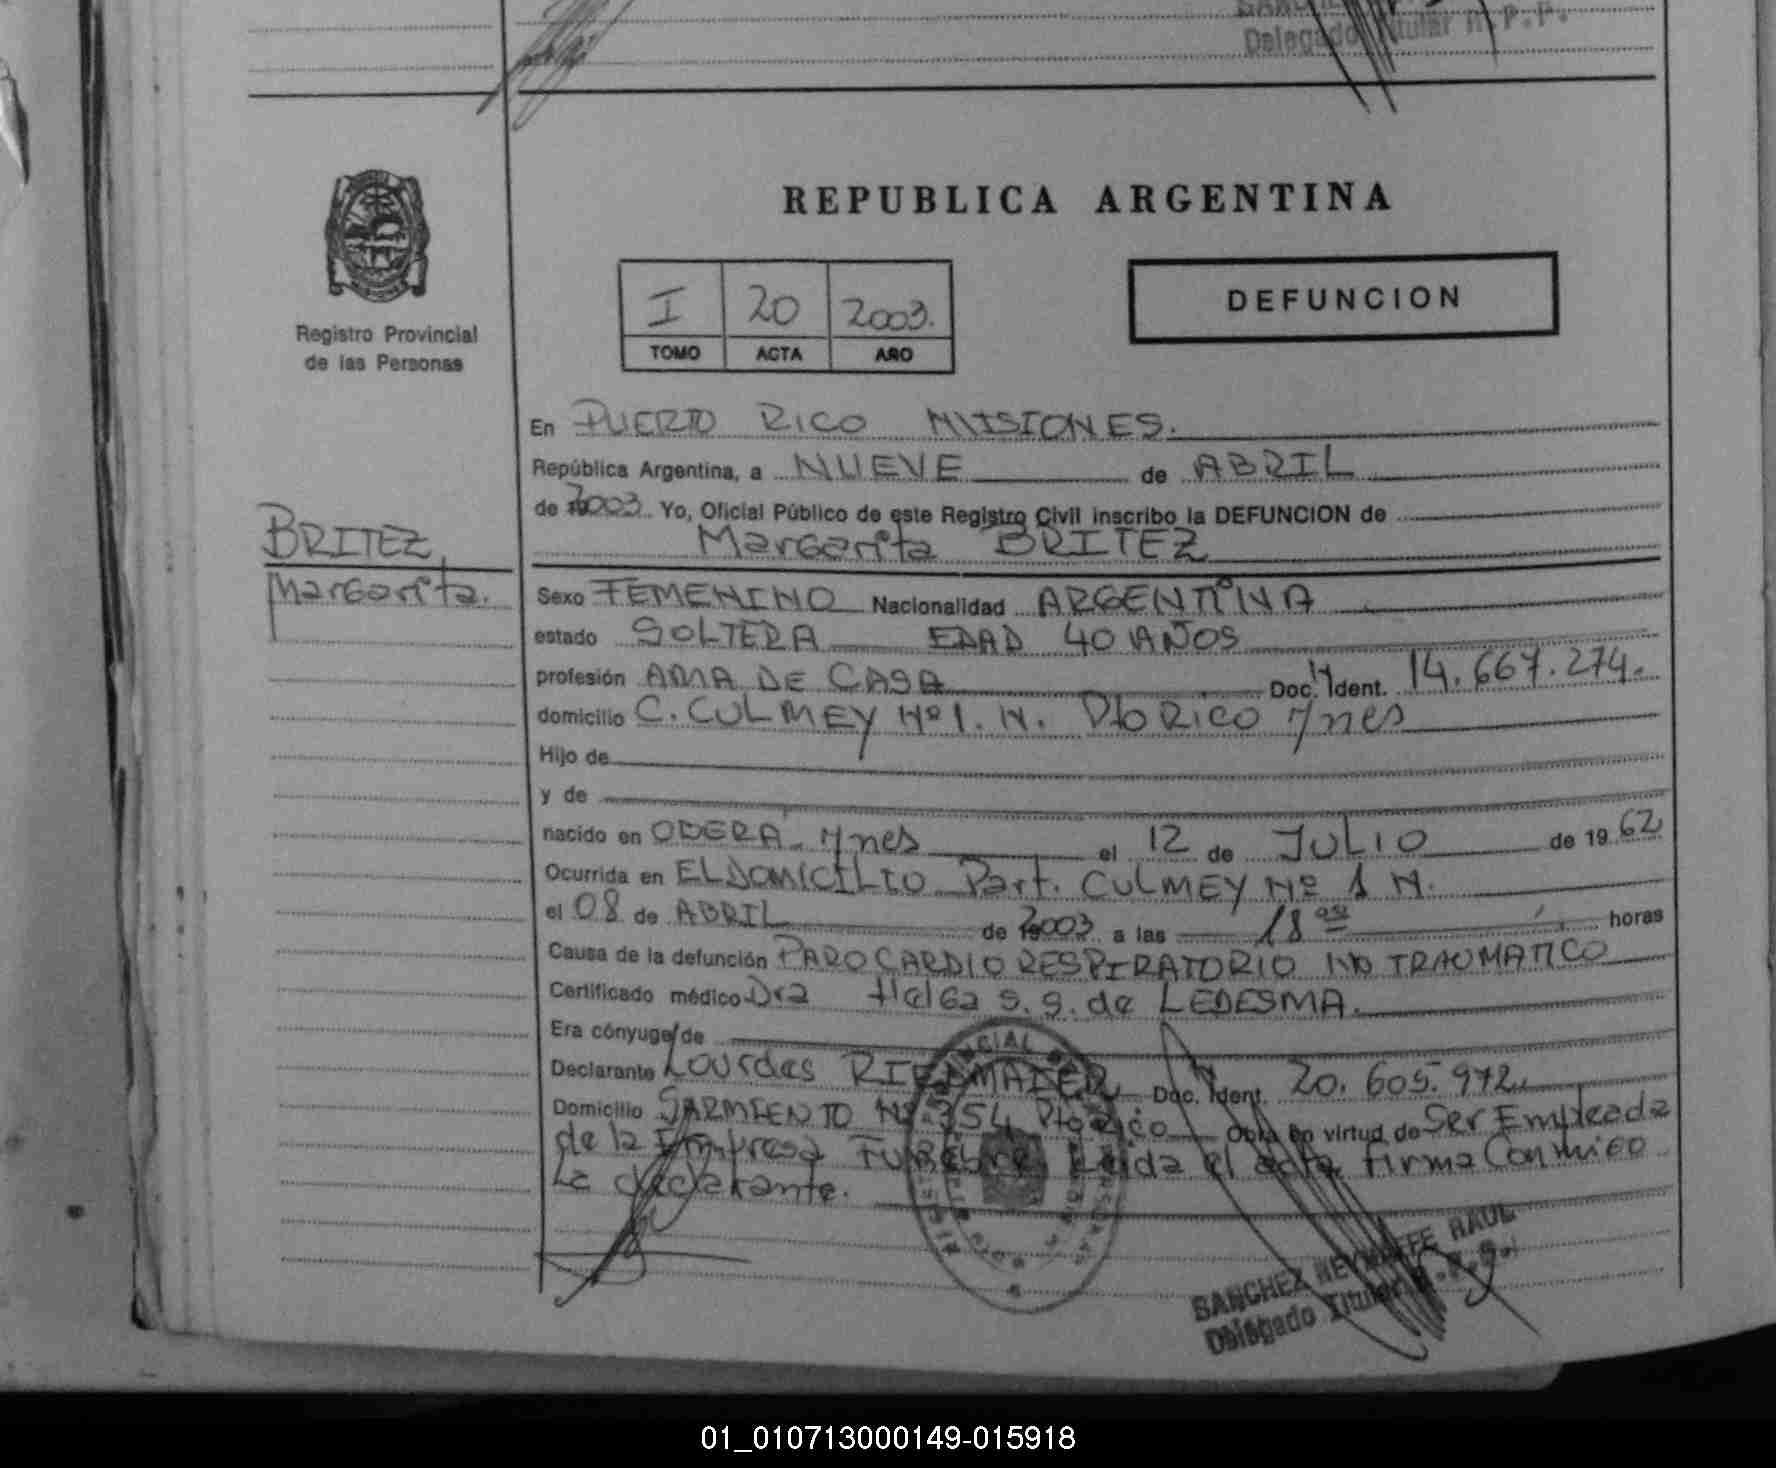 Delegado Titular R.P.P.
REPUBLICA ARGENTINA
Registro Provincial
de las Personas
I 20 2003.
TOMO ACTA AÑO
DEFUNCION
En PUERTO RICO MISIONES.
República Argentina, a NUEVE de ABRIL
de 2003 Yo, Oficial Público de este Registro Civil inscribo la DEFUNCION de
Margarita BRITEZ
BRITEZ,
Margarita.
Sexo FEMENINO Nacionalidad ARGENTINA
estado SOLTERA EDAD 40 AÑOS
profesión AMA DE CASA Doc. Ident. 14.667.274.
domicilio C. CULMEY Nº 1. N. Pto Rico Mnes
Hijo de
y de
nacido en OBERA. Mnes el 12 de JULIO de 1962
Ocurrida en EL DOMICILIO Part. CULMEY Nº 1 N.
el 08 de ABRIL de 2003 a las 18 horas
Causa de la defunción PARO CARDIO RESPIRATORIO NO TRAUMATICO
Certificado médico Dra Helga S. S. de LEDESMA.
Era cónyuge de
Declarante Lourdes Doc. Ident. 20.605.972.
Domicilio SARMIENTO Nº 354 Pto Rico Obra en virtud de Ser Empleada
de la Empresa Funebre. Leida el acta firma Conmigo
La declarante.
SANCHEZ RAUL
Delegado Titular R.P.P.
01_010713000149-015918